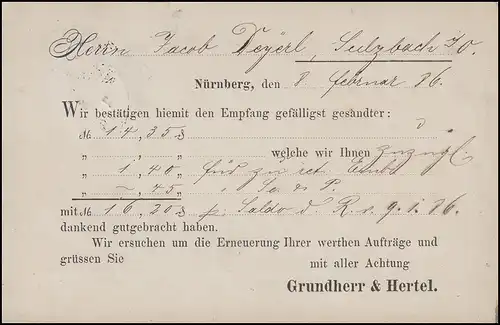 Herrn Jacob Deyerl, Sulzbach I/O.
Nürnberg, den 8. Februar 86.
Wir bestätigen hiemit den Empfang gefälligst gesandter:
M 14, 35 S
„ „ „ welche wir Ihnen zuzügl.
„ 1, 40 „ für zu ret.
„ —, 45 „ „ Sc. & P.
mit M 16, 20 S p. Saldo d. R. v. 9.1.86.
dankend gutgebracht haben.
Wir ersuchen um die Erneuerung Ihrer werthen Aufträge und
grüssen Sie mit aller Achtung
Grundherr & Hertel.